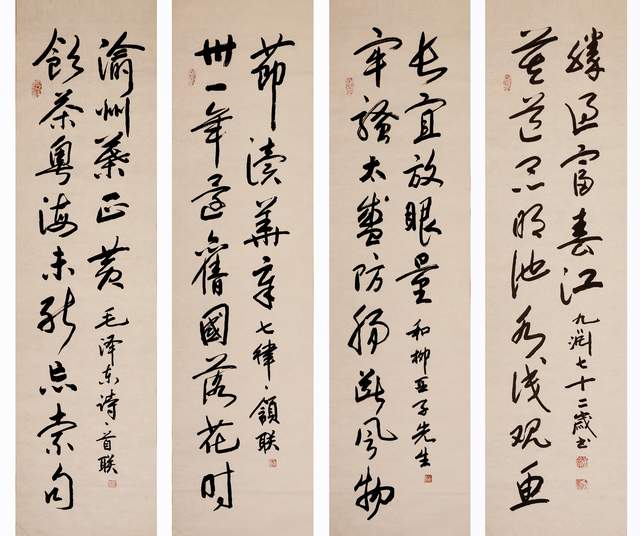 飲茶粤海未能忘索句
渝州葉正黄 毛泽东诗·首联
卅一年還舊國落花时
節读華章 七律·領联
牢騷太盛防腸断风物
长宜放眼量 和柳亚子先生
莫道昆明池水浅观鱼
勝过富春江 九渊七十二歲书